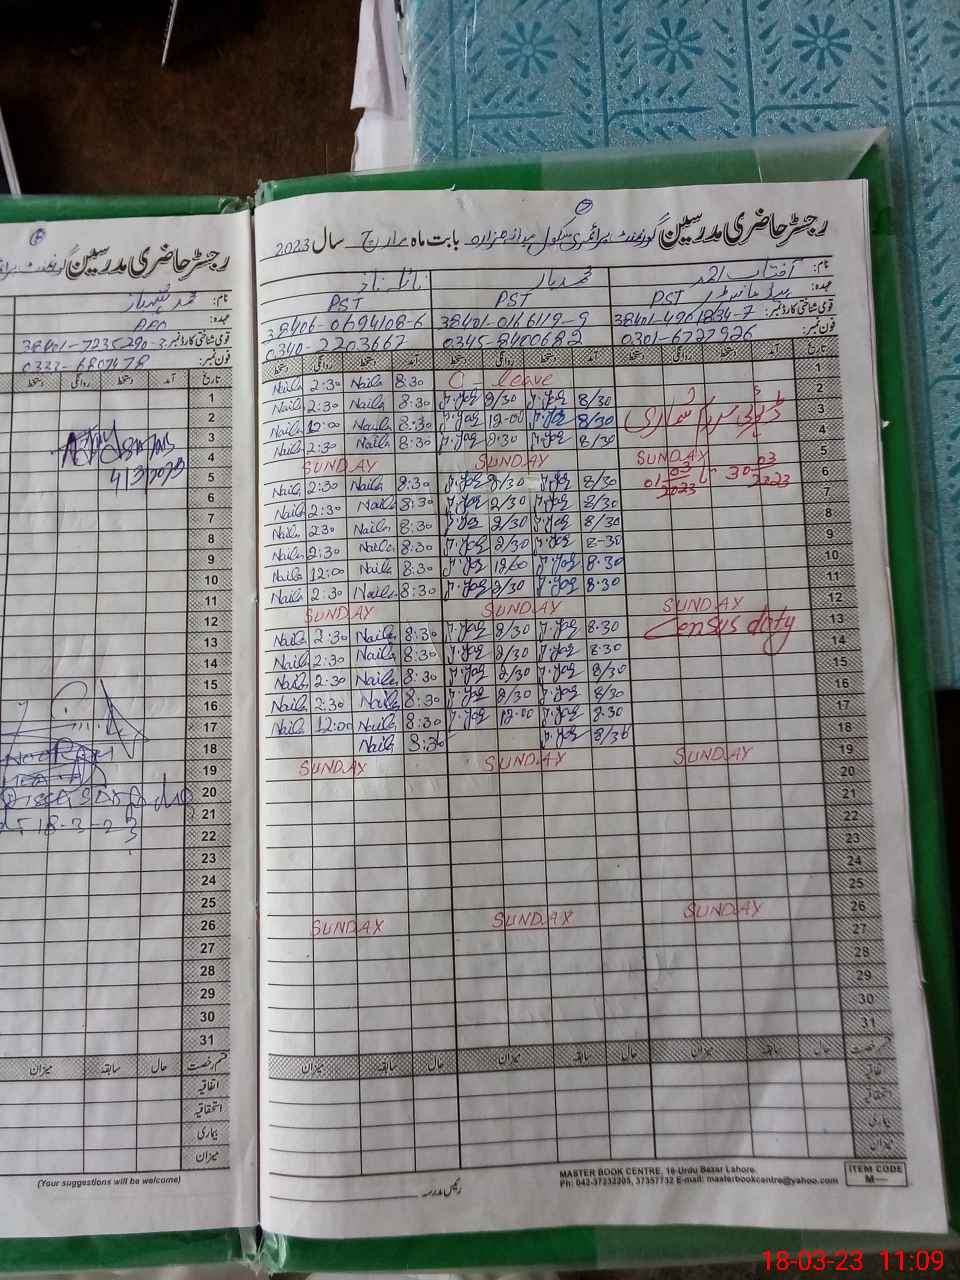 رجسٹر حاضری مدرسین گورنمنٹ پرائمری سکول بابت ماہ مارچ سال 2023
نام: آفتاب احمد محمد یار نائلہ ناز
عہدہ: ہیڈ ماسٹر PST PST PST
قومی شناختی کارڈ نمبر: 38401-4961834-7 38401-0166119-9 38406-0694108-6
فون نمبر: 0301-6727926 0345-8400682 0340-2203667
تاریخ آمد دستخط روانگی دستخط آمد دستخط روانگی دستخط آمد دستخط روانگی دستخط
1 C-leave 8:30 Naila 2:30 Naila
2 8/30 2/30 8:30 Naila 2:30 Naila
3 ڈیوٹی مردم شماری 8/30 12-00 8:30 Naila 12:00 Naila
4 8/30 2:30 8:30 Naila 2:30 Naila
5 SUNDAY SUNDAY SUNDAY
6 01-03-2023 30-03-2023 8/30 2/30 8:30 Naila 2:30 Naila
7 8/30 2/30 8:30 Naila 2:30 Naila
8 8/30 2/30 8:30 Naila 2:30 Naila
9 8-30 2/30 8:30 Naila 2:30 Naila
10 8.30 12/00 8:30 Naila 12:00 Naila
11 8.30 2/30 8:30 Naila 2:30 Naila
12 SUNDAY SUNDAY SUNDAY
13 Census duty 8.30 2/30 8:30 Naila 2:30 Naila
14 8.30 2/30 8:30 Naila 2:30 Naila
15 8/30 2/30 8:30 Naila 2:30 Naila
16 8/30 2/30 8:30 Naila 2:30 Naila
17 8.30 12-00 8:30 Naila 12:00 Naila
18 8/30 8:30 Naila
19 SUNDAY SUNDAY SUNDAY
20
21
22
23
24
25
26 SUNDAY SUNDAY SUNDAY
27
28
29
30
31
قسم رخصت حال سابقہ میزان حال سابقہ میزان حال سابقہ میزان
اتفاقیہ
استحقاقیہ
بیماری
میزان
رئیس مدرسہ
MASTER BOOK CENTRE, 16-Urdu Bazar Lahore.
Ph: 042-37232205, 37357732 E-mail: masterbookcentre@yahoo.com
ITEM CODE
M—
رجسٹر حاضری مدرسین گورنمنٹ
نام: محمد شہباز
عہدہ:
قومی شناختی کارڈ نمبر: 38401-7235290-3
فون نمبر: 0333-6807478
تاریخ آمد دستخط روانگی دستخط
1
2
3
4
5 4/3/2023
6
7
8
9
10
11
12
13
14
15
16
17
18
19
20
21 18-3-23
22
23
24
25
26
27
28
29
30
31
قسم رخصت حال سابقہ میزان
اتفاقیہ
استحقاقیہ
بیماری
میزان
(Your suggestions will be welcome)
18-03-23 11:09